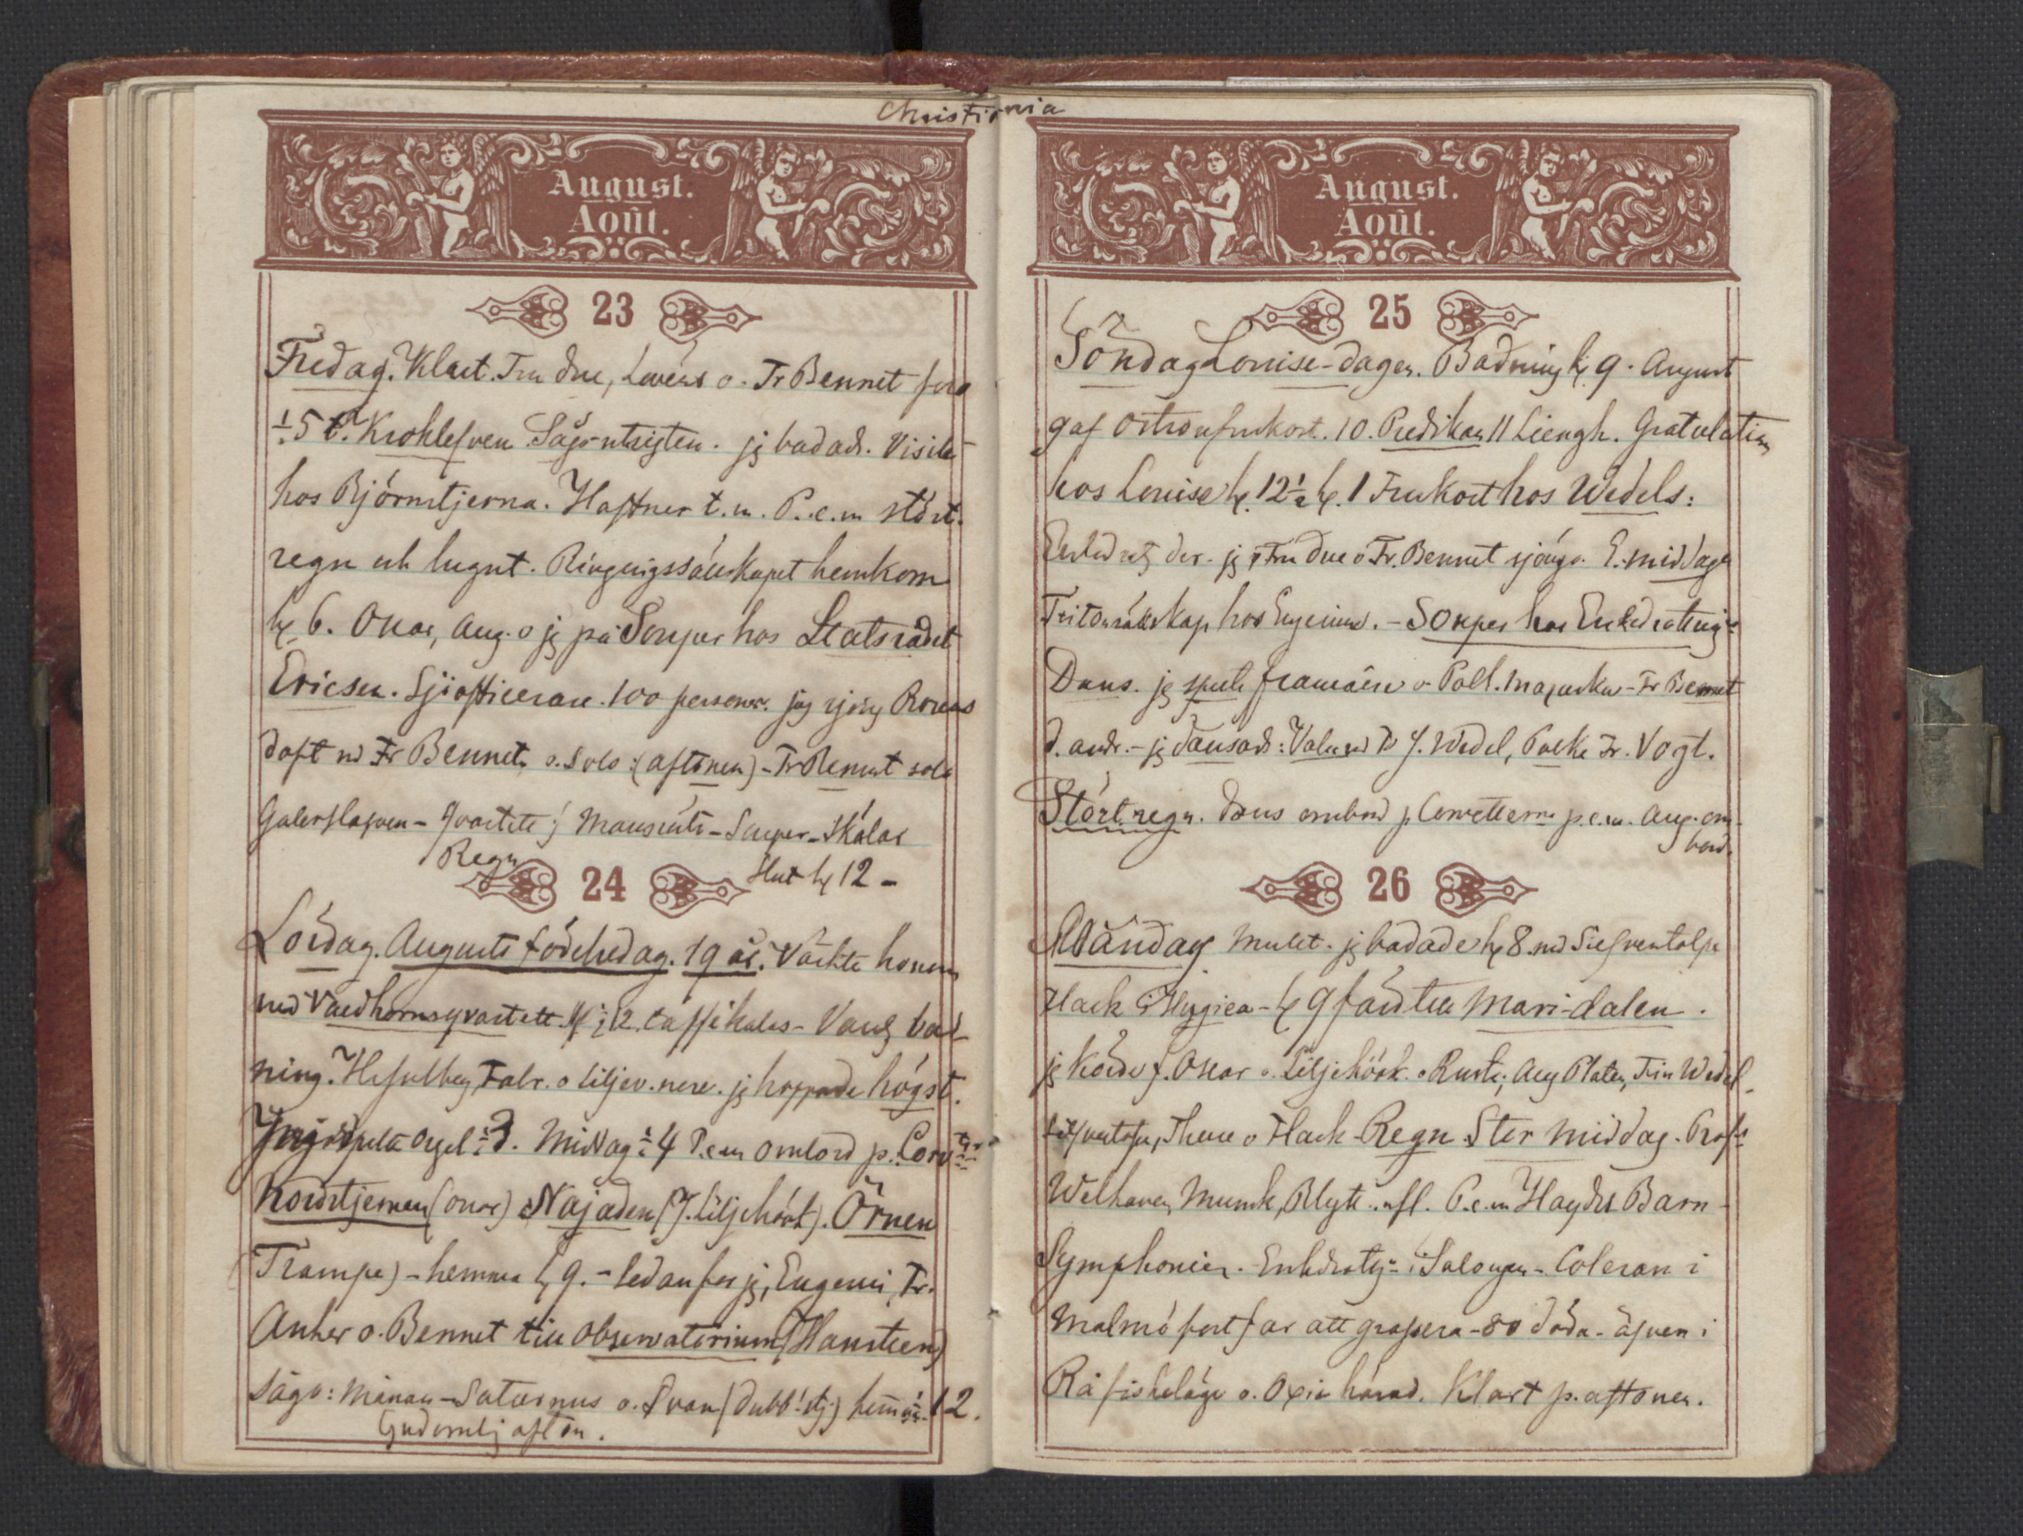 Christiania
August.
Août.
23
Fredag. Klart. Fru Due, Lovéns o. Fr Bennet foro
½ 5 t. Krokklefven jg badade. Visite
hos Björnstjerna. Haffner t. m. P. e. m stört-
regn och lugnt. Ringerigssällskapet hemkom
kl 6. Oscar, Aug. o jg på Souper hos Statsrådet
Ericsen. Sjöofficerare. 100 personer. jag sjöng
doft md Fr Bennet o. Solo (aftonen) - Fr Bennet solo
- Qvartett - Souper - Skålar
Regn
Slut kl 12 -
24
Lördag. Augusts födelsedag. 19 år. Väckte honom
med Valdhornsqvartett. Caffékalas - Vanl. bad-
ning. Fabr. o Liljev. nere. jg hoppade högst.
Jag spelte Orgel ½ 3. Middag ½ 4 P. e m ombord p. Corv
Nordstjernan (Oscar) Najaden (J. Liljehöök). Örnen
Trampe) - hemma kl 9. - Sedan for jg, Eugenie, Fr.
Anker o. Bennet till Observatorium (Hansteen)
såge: Månan - Saturnus o. Svan (dubb. stj.) hemma 12.
Gudomlig afton.
August.
Août.
25
Söndag Louise-dagen. Badning kl 9. August
gaf Ostronfrukost. 10. Predikan 11 Liengh. Gratulation
hos Louise kl. 12½ kl. 1 Frukost hos Wedels:
der. jg Fru Due o Fr. Bennet sjöngo. E. middagen
hos Eugenie. - Souper hos
Dans. jg spelte francaise o Poll. mazurka - Fr Bennet
d. andr. - jg dansade: Vals md J. Wedel, Polka Fr. Vogt.
Störtregn. Dans ombord p. Corvetterne p. e. m. Aug. om-
bord.
26
Måndag Mulet. jg badade kl 8. md Silfverstolpe
Flach i Hygiea - kl 9 färd till Maridalen.
jg körde f. Oscar o. Liljehöök. o Rusti, Aug Platen, Fru Wedel,
Silfverstolpe, Theve o Flach - Regn. Stor Middag. Prof
Welhaven, Munch, Blytt. m fl. P. e. m Haydns Barn-
Symphonier. i Salongen - Coleran i
Malmö fortfar att grassera - 80 döda - äfven i
Rå fiskeläge o. Oxie härad. Klart p. aftonen.